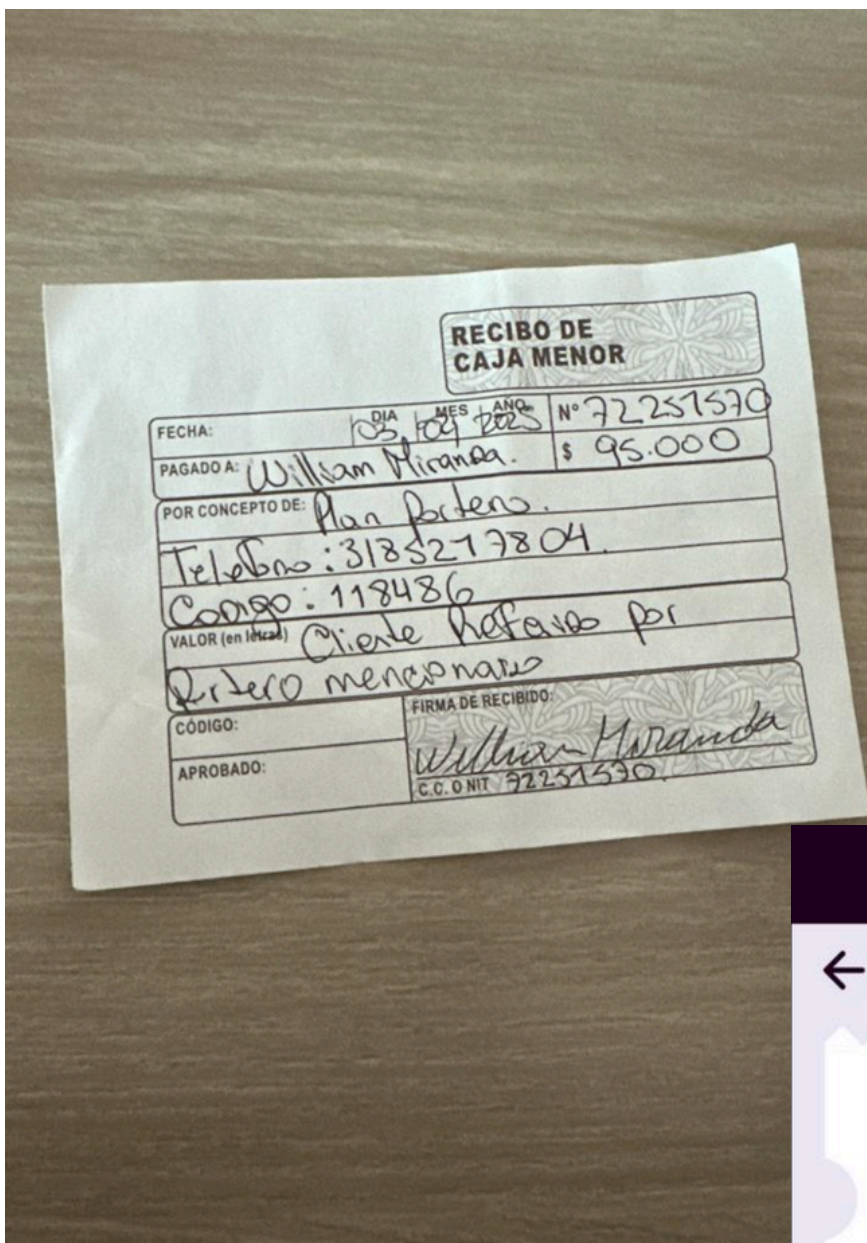 RECIBO DE
CAJA MENOR
FECHA: DIA MES AÑO 03 2025 Nº 72251570
PAGADO A: William Miranda. $ 95.000
POR CONCEPTO DE: Plan Portero.
Telefono: 3185217804.
Codigo: 118486
VALOR (en letras) Cliente por
Portero mencionado
CÓDIGO: FIRMA DE RECIBIDO:
William Miranda
APROBADO: C.C. O NIT 72251570.